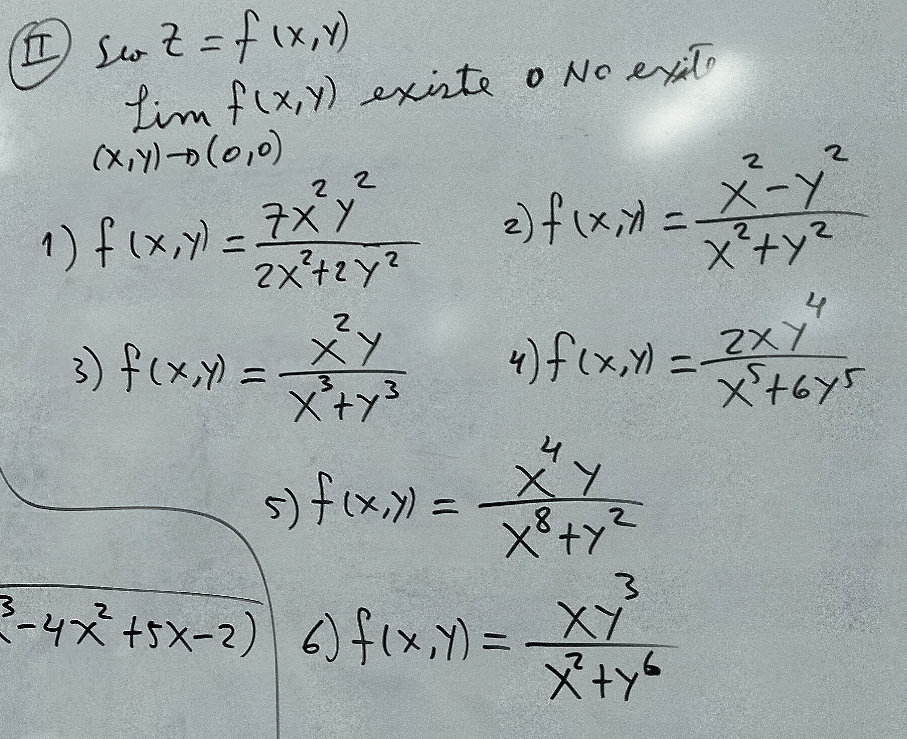 II Sea Z = f(x,y)
Lim f(x,y) existe o No existe
(x,y)→(0,0)
1) f(x,y) = 7x²y² / 2x²+2y²
2) f(x,y) = x²-y² / x²+y²
3) f(x,y) = x²y / x³+y³
4) f(x,y) = 2xy⁴ / x⁵+6y⁵
5) f(x,y) = x⁴y / x⁸+y²
³-4x²+5x-2)
6) f(x,y) = xy³ / x²+y⁶